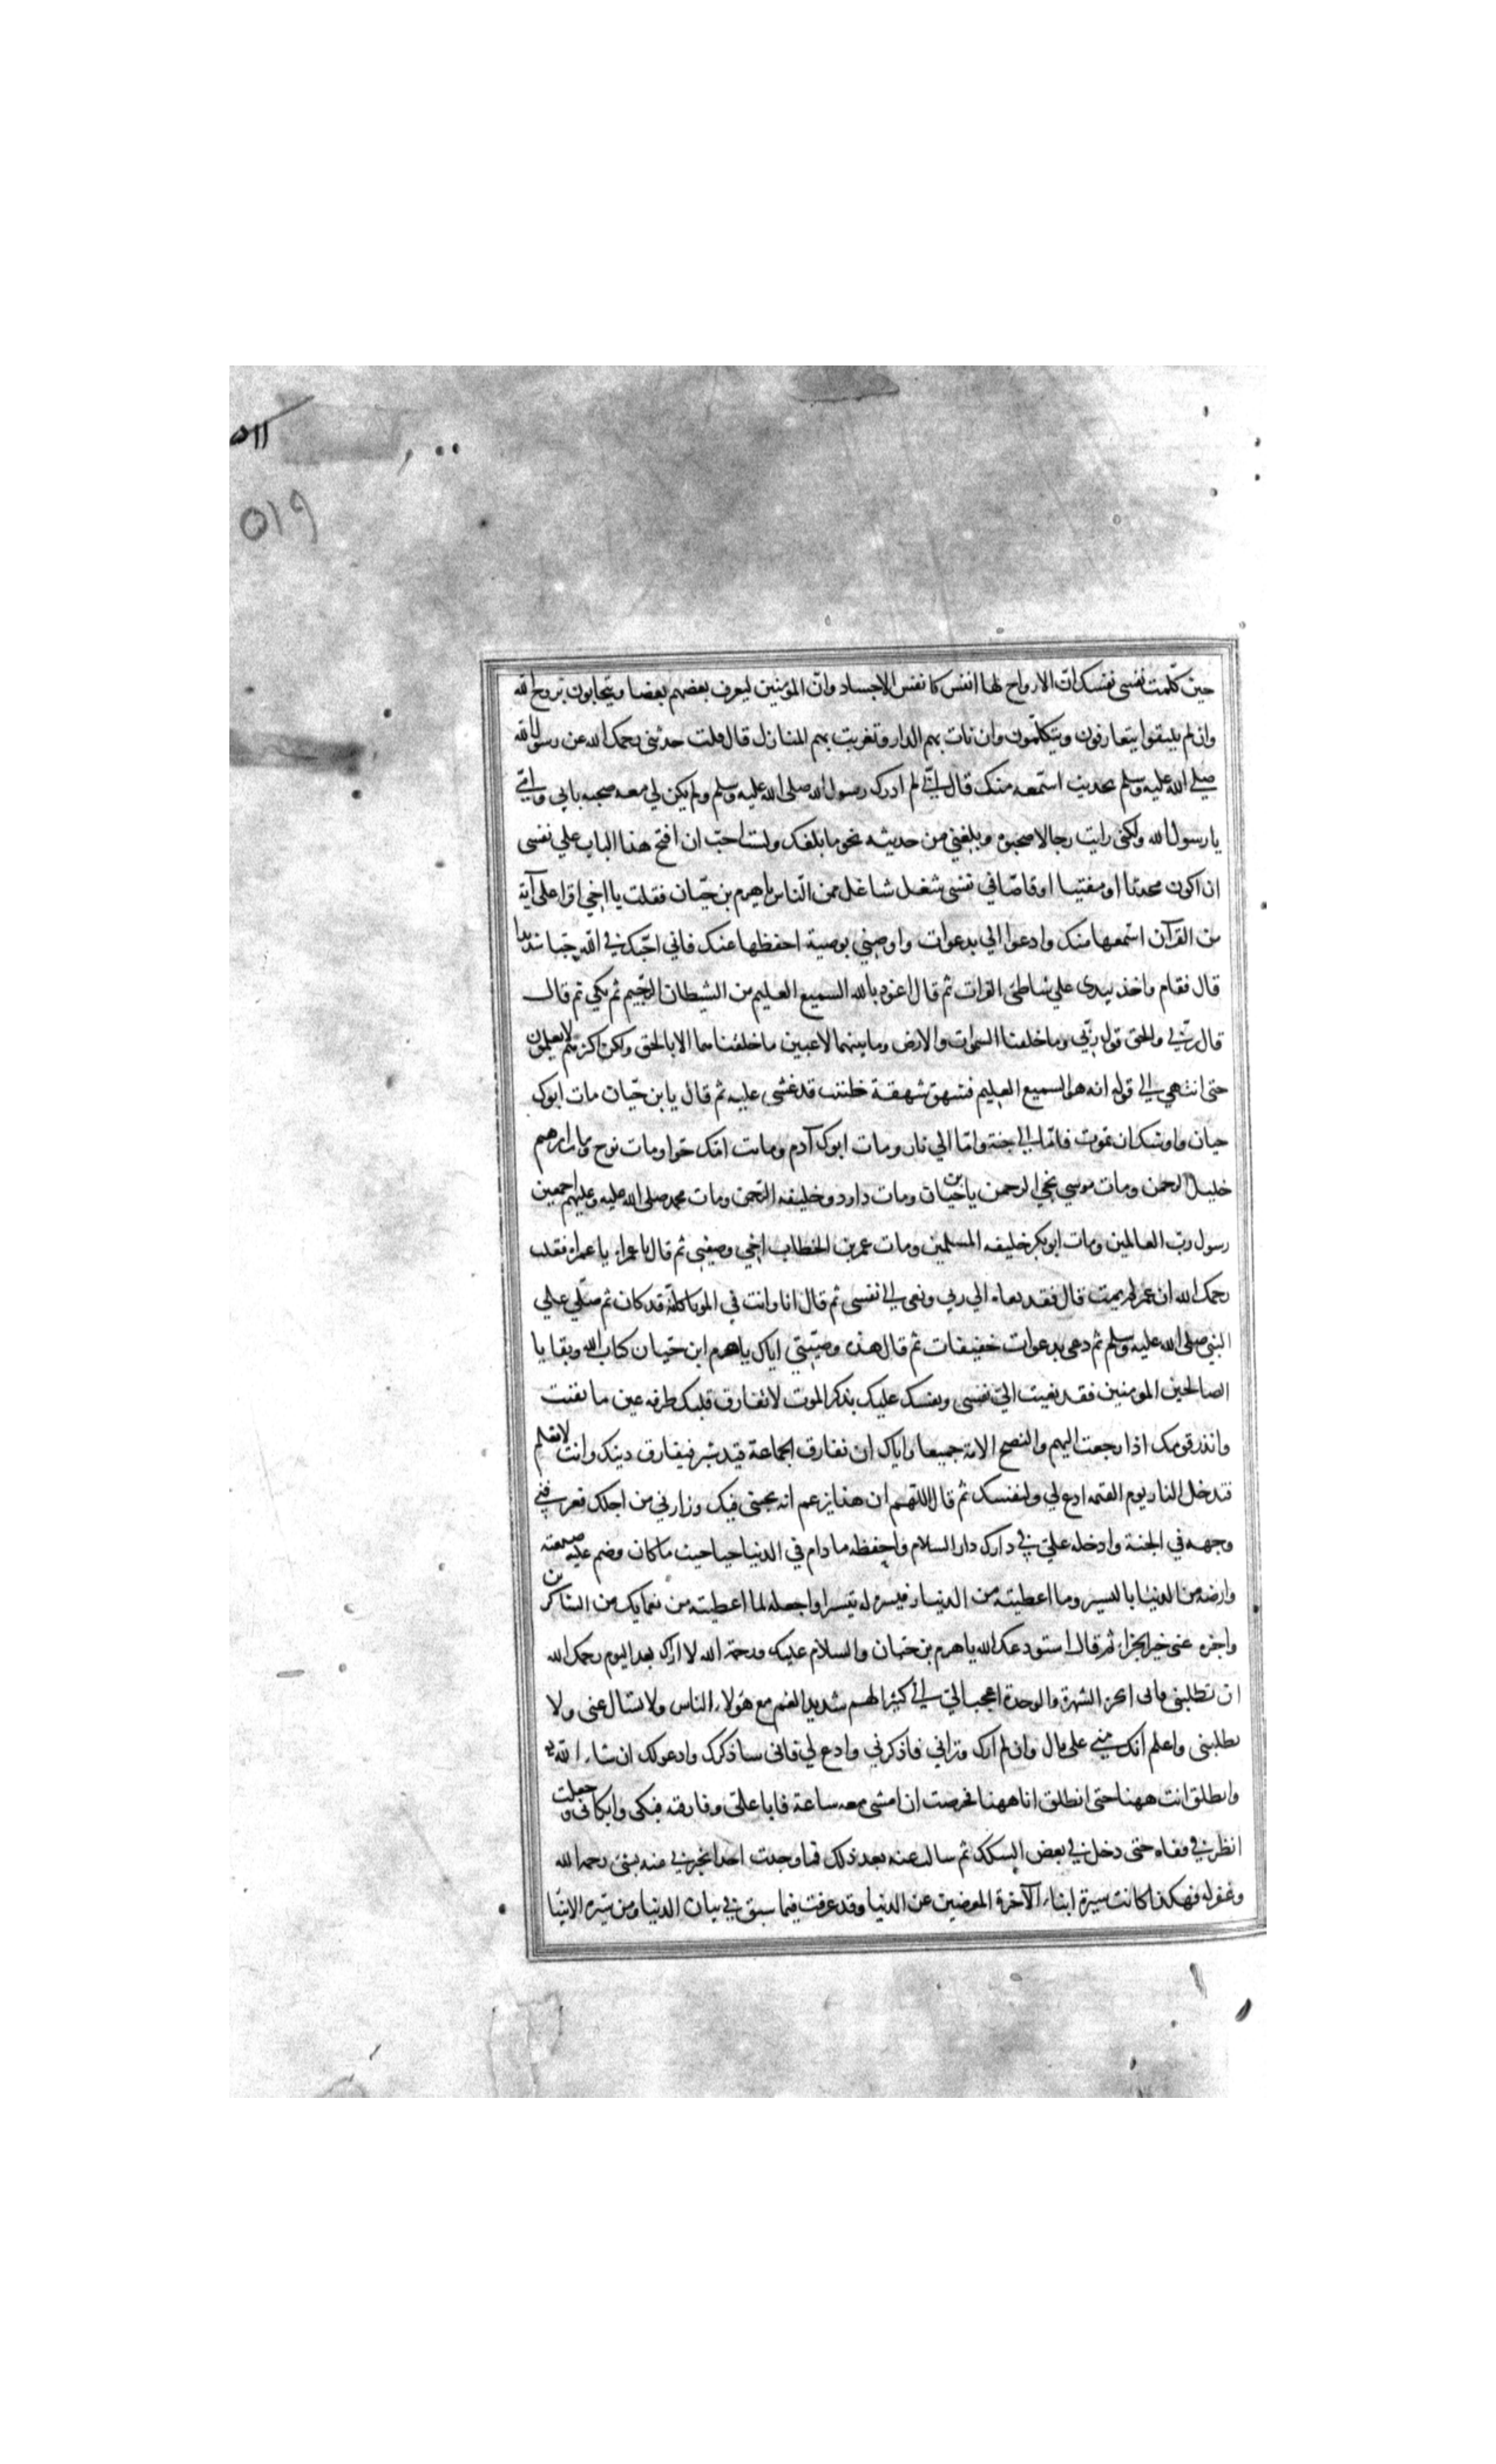 ٥١١
٥١٩
حين كلمت نفسى نفسك ان الارواح لها انفس كانفس الاجساد وان المؤمنين ليعرف بعضهم بعضا ويتحابون بروح الله
وان لم يلتقوا يتعارفون ويتكلمون وان نات بهم الدار وتغربت بهم المنازل قال قلت حدثنى رحمك الله عن رسول الله
صلى الله عليه وسلم بحديث استمعه منك قال انى لم ادرك رسول الله صلى الله عليه وسلم ولم يكن لي معه صحبه بابى وامى
يا رسول الله ولكنى رايت رجالا صحبوه وبلغني من حديثه نحو ما بلغك ولست احب ان افتح هذا الباب علي نفسى
ان اكون محدثا او مفتيا او قاصا في نفسى شغل شاغل من الناس يا هرم بن حيان فقلت يا اخي اقرا على آية
من القرآن استمعها منك وادعوا لي بدعوات واوصني بوصية احفظها عنك فاني احبك في الله حبا شديدا
قال فقام واخذ بيدى علي شاطئ الفرات ثم قال اعوذ بالله السميع العليم من الشيطان الرجيم ثم بكي ثم قال
قال ربي والحق قول ربي وما خلقنا السموات والارض وما بينهما لاعبين ما خلقناهما الا بالحق ولكن اكثرهم لا يعلمون
حتى انتهي الي قوله انه هو السميع العليم فشهق شهقة ظننت قد غشى عليه ثم قال يا بن حيان مات ابوك
حيان واوشك ان تموت فاما الي جنة واما الي نار ومات ابوك آدم وماتت امك حوا ومات نوح ومات ابرهيم
خليل الرحمن ومات موسي نجي الرحمن يا بن حيان ومات داود خليفه الرحمن ومات محمد صلى الله عليه وعليهم اجمعين
رسول رب العالمين ومات ابو بكر خليفه المسلمين ومات عمر بن الخطاب اخي وصفيى ثم قال يا عمراه يا عمراه فقلت
رحمك الله ان عمر لم يمت قال فقد نعاه الي ربي ونعى الي نفسى ثم قال انا وانت في الموتا كانه قد كان ثم صلي علي
النبي صلى الله عليه وسلم ثم دعى بدعوات خفيفات ثم قال هذه وصيتي اياك يا هرم ابن حيان كتاب الله وبقايا
الصالحين المومنين فقد نعيت الي نفسى ونفسك عليك بذكر الموت لا تفارق قلبك طرفه عين ما بقيت
وانذر قومك اذا رجعت اليهم والنصح الامه جميعا واياك ان تفارق الجماعة قيد شبر فيفارق دينك وانت لا تعلم
فتدخل النار يوم القيمه ادع لي ولنفسك ثم قال اللهم ان هذا يزعم انه يحبنى فيك وزارني من اجلك فعرفني
وجهه في الجنة وادخله علي في دارك دار السلام واحفظه ما دام في الدنيا حيا حيث ما كان وضم عليه ضيعته
وارضه من الدنيا باليسير وما اعطيته من الدنيا فيسره له تيسرا واجعله لما اعطيته من نعمايك من الشاكرين
واجزه عنى خير الجزا ثم قال استودعك الله يا هرم بن حيان والسلام عليك ورحمة الله لا اراك بعد اليوم رحمك الله
ان تطلبنى فانى اكره الشهرة والوحدة اعجب الي انى كثير الهم شديد الغم مع هؤلاء الناس ولا تسال عنى ولا
تطلبنى واعلم انك منى على بال وان لم ارك وتراني فاذكرني وادع لي فانى ساذكرك وادعولك ان شاء الله
وانطلق انت ههنا حتى انطلق انا ههنا فحرصت ان امشى معه ساعة فابا علي وفارقته فبكى وابكانى وجعلت
انظر في قفاه حتى دخل في بعض السكك ثم سالت عنه بعد ذلك فما وجدت احدا يخبرني عنه بشى رحمه الله
وغفر له فهكذا كانت سيرة ابناء الآخرة المعرضين عن الدنيا وقد عرفت فيما سبق في بيان الدنيا ومن سيره الانبيا